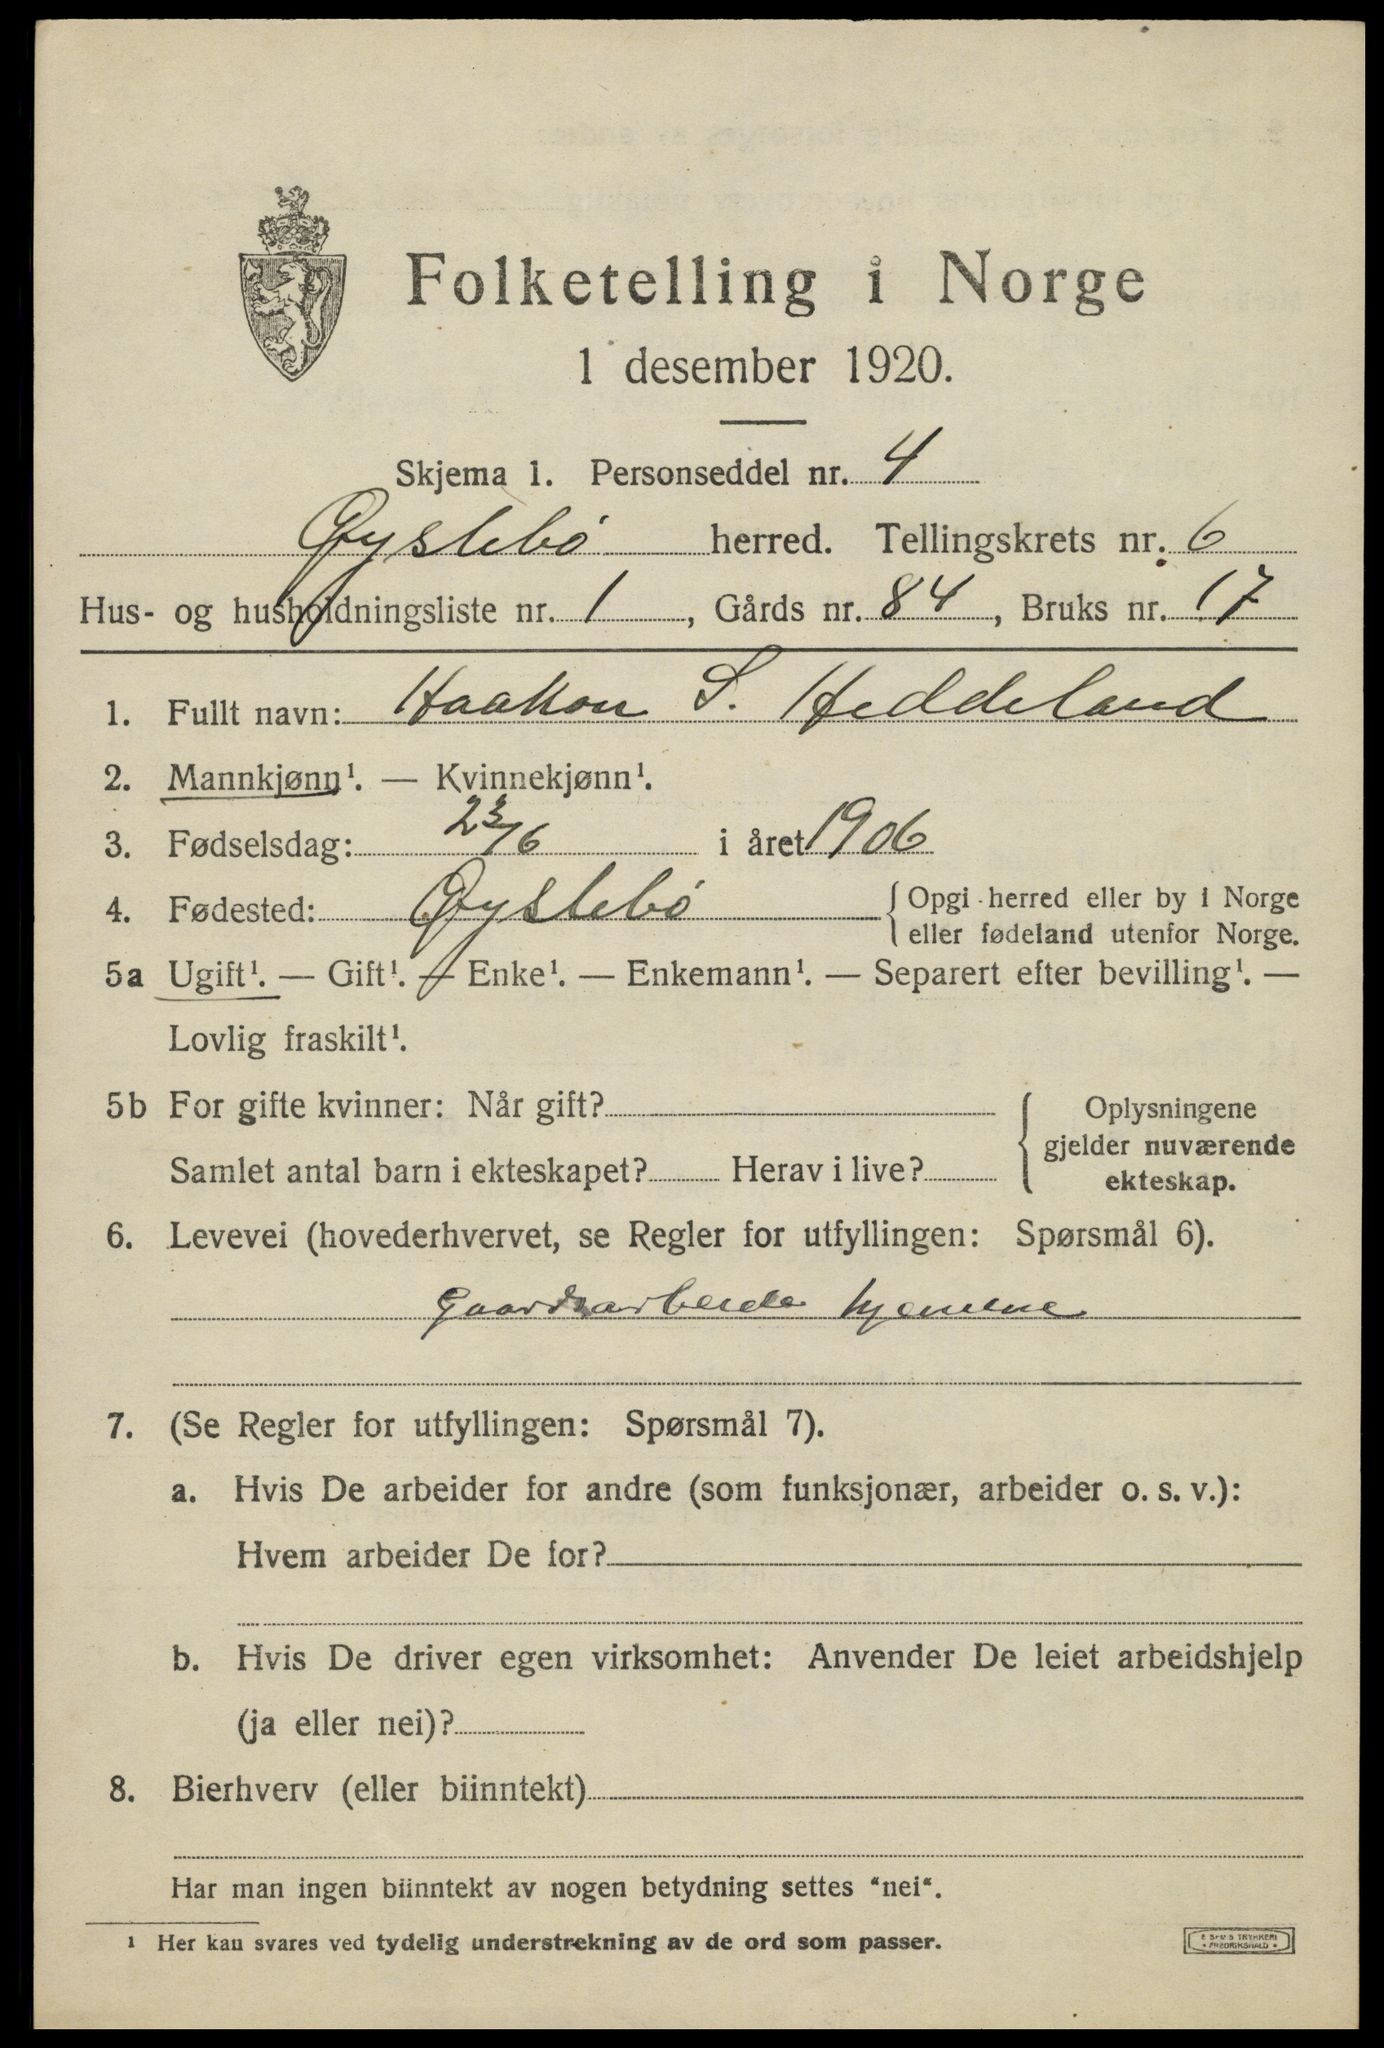 Folketelling i Norge
1 desember 1920.
Skjema 1. Personseddel nr. 4
Øyslebö herred. Tellingskrets nr. 6
Hus- og husholdningsliste nr. 1, Gårds nr. 84, Bruks nr. 17
1. Fullt navn: Haakon S. Heddeland
2. Mannkjønn¹. — Kvinnekjønn¹.
3. Fødselsdag: 23/6 i året 1906
4. Fødested: Øyslebö { Opgi herred eller by i Norge
eller fødeland utenfor Norge.
5a Ugift¹. — Gift¹. — Enke¹. — Enkemann¹. — Separert efter bevilling¹. —
Lovlig fraskilt¹.
5b For gifte kvinner: Når gift? { Oplysningene
gjelder nuværende
Samlet antal barn i ekteskapet? Herav i live? ekteskap.
6. Levevei (hovederhvervet, se Regler for utfyllingen: Spørsmål 6).
Gaardsarbeide hjemme
7. (Se Regler for utfyllingen: Spørsmål 7).
a. Hvis De arbeider for andre (som funksjonær, arbeider o. s. v.):
Hvem arbeider De for?
b. Hvis De driver egen virksomhet: Anvender De leiet arbeidshjelp
(ja eller nei)?
8. Bierhverv (eller biinntekt)
Har man ingen biinntekt av nogen betydning settes "nei".
¹ Her kan svares ved tydelig understrekning av de ord som passer.
E SEMS TRYKKERI
• FREDRIKSHALD •